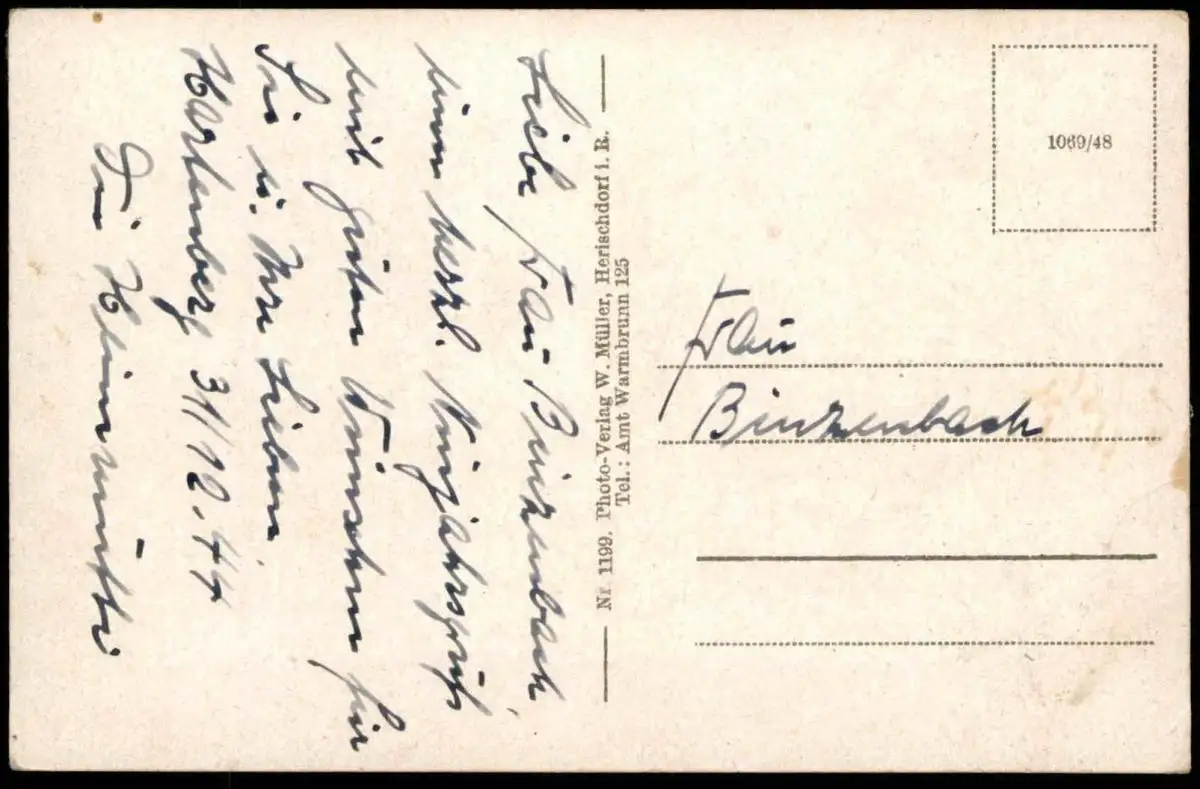 Liebe Frau Binzenbach,
einen herzl. Neujahrsgruß
mit guten Wünschen für
Sie u. Ihre Lieben.
31/12.44
Nr. 1199. Photo-Verlag W. Müller, Herischdorf i. R.
Tel.: Amt Warmbrunn 125
1069/48
Frau
Binzenbach